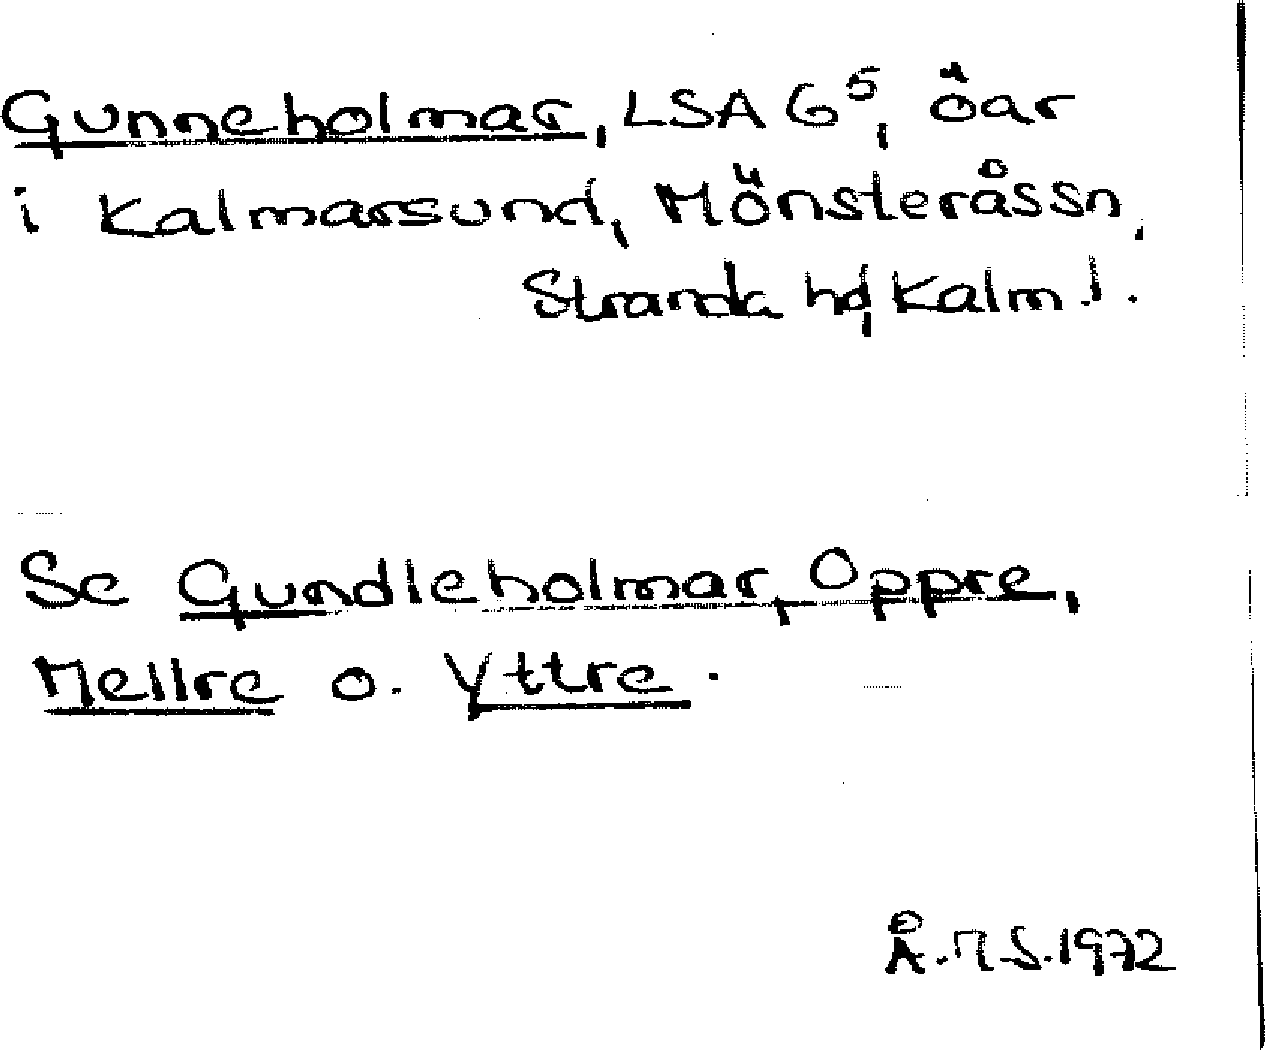 Gunneholmar, LSA G⁵, öar
i Kalmarsund, Mönsteråssn,
Stranda hd, Kalm. l.
Se Gundleholmar, Oppre,
Mellre o. Yttre.
Å.M S.1972